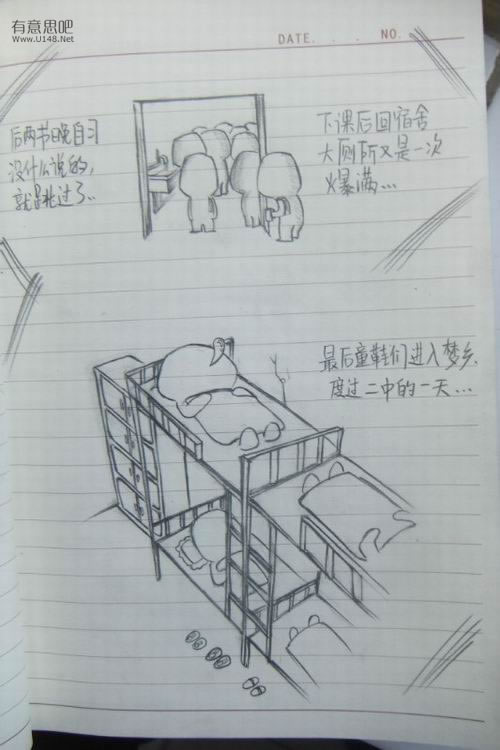 有意思吧
www.U148.Net
DATE. . . NO.
后两节晚自习
没什么说的,
就跳过了..
下课后回宿舍
大厕所又是一次
爆满...
最后童鞋们进入梦乡.
度过二中的一天...